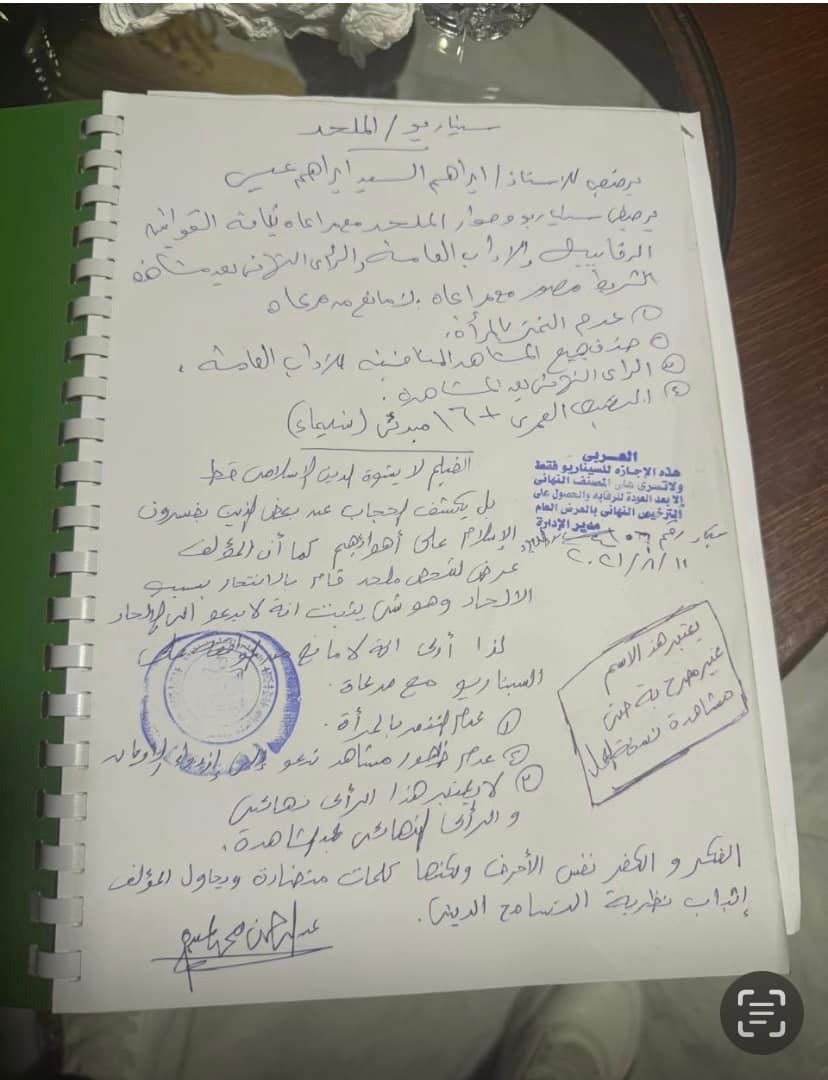 سيناريو / الملحد
يرخص للأستاذ / ابراهيم السيد ابراهيم عيسى
يرخص سيناريو وحوار الملحد مع مراعاه كافة القوانين
الرقابية والاداب العامة والرأى النهائى بعد مشاهده
الشريط مصور مع مراعاه
١ عدم التنمر بالمرأة.
٢ حذف جميع المشاهد المنافية للاداب العامة.
٣ الرأى النهائى بعد المشاهدة.
٤ التصنيف العمرى +١٦ مبدئى (سليماء)
الفيلم لا يشوة الدين الإسلامى قط
بل يكشف الحجاب عن بعض الذين يفسرون
الإسلام على أهوائهم كما أن المؤلف
عرض لشخص ملحد قام بالانتحار بسبب
الالحاد وهو شئ يثبت انة لا يدعو الى الإلحاد
لذا أرى انة لا مانع من الموافقة على
السيناريو مع مراعاة.
١ عدم التنمر بالمرأة.
٢ عدم ظهور مشاهد تدعو إلى إزدراء الأديان
٣ لا يعتبر هذا الرأى نهائى
و الرأى النهائى بعد المشاهدة.
الفكر و الكفر نفس الأحرف ولكنها كلمات متضادة ويحاول المؤلف
إثبات نظرية التسامح الدينى.
العربى
هذه الإجازه للسيناريو فقط
ولاتسرى على المصنف النهائى
إلا بعد العودة للرقابه والحصول على
الترخيص النهائى بالعرض العام
مدير الإدارة
٢٠٢١/٨/١١
يعتبر هذا الاسم
غير مصرح بة حتى
مشاهدة نسخة العمل